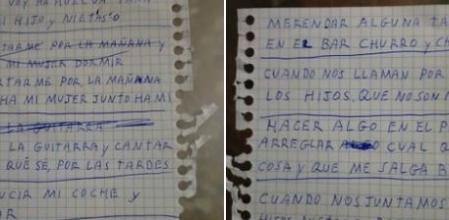 VOY HA HUELVA PARA
MI HIJO y NIETOS O
TARME POR LA MAÑANA y
MI MUJER DORMIR
RTARME POR LA MAÑANA
HA MI MUJER JUNTO HA MI
LA GUITARRA
LA GUITARRA y CANTAR
QUÉ SE, POR LAS TARDES
UCIR MI COCHE y
AR
MERENDAR ALGUNA TA
EN EL BAR CHURRO y CH
CUANDO NOS LLAMAN POR
LOS HIJOS, QUE NO SON
HACER ALGO EN EL P
ARREGLAR CUAL Q
COSA y QUE ME SALGA B
CUANDO NOS JUNTAMOS